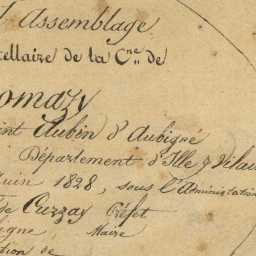 d'Assemblage
cellaire de la Cne de
omazy
int Aubin d'Aubigné
Département d'Ille & Vilai
uin 1828, sous l'Administration
de Curzay Préfet
igné, Maire
tion de